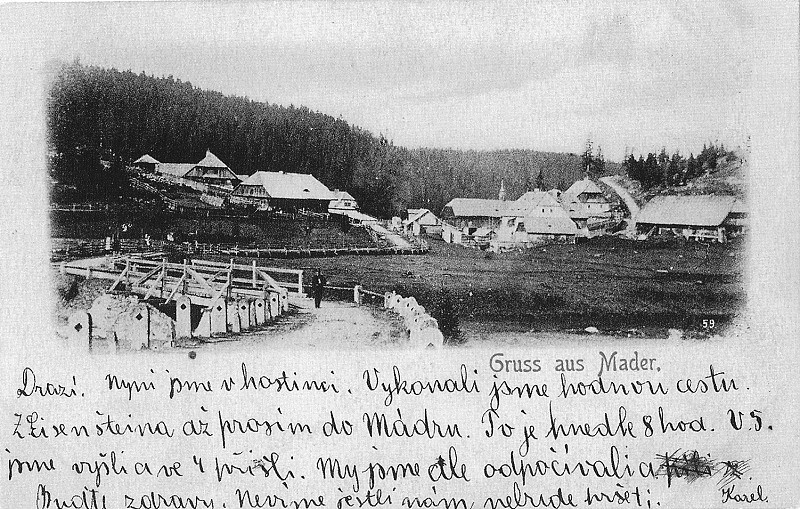 59
Gruss aus Mader.
Drazí. Nyní jsme v hostinci. Vykonali jsme hodnou cestu.
Z Eisensteina až prosím do Mádru. To je hnedle 8 hod. V 5.
jsme vyšli a ve 4 přišli. My jsme dle odpočívali a
Buďte zdrávy. Nevíme jestli nám nebude pršet;
Karel.